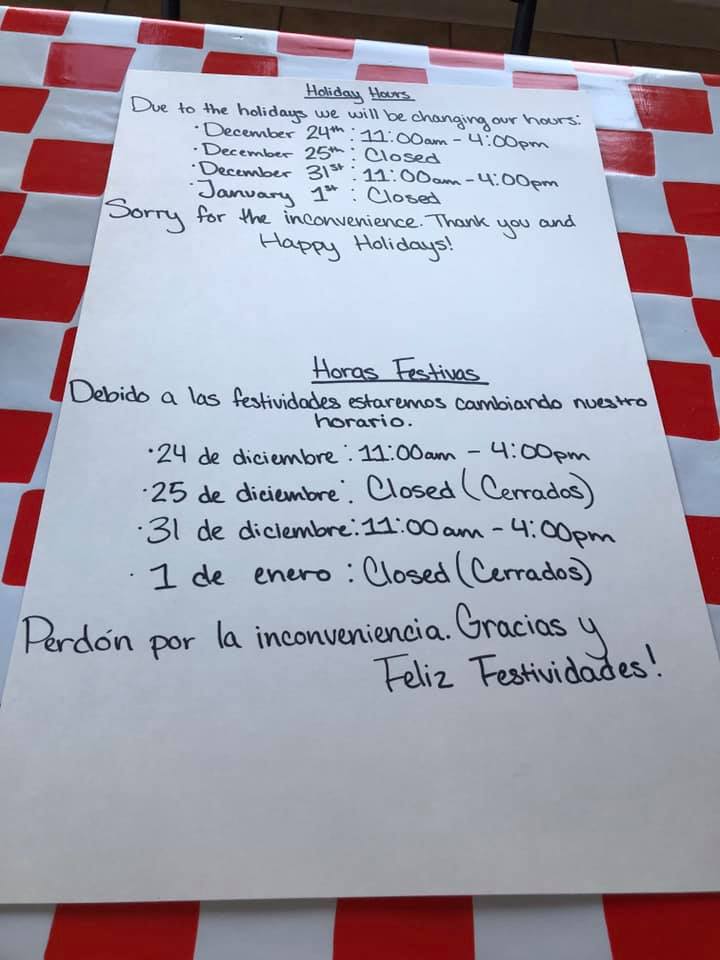 Holiday Hours
Due to the holidays we will be changing our hours:
· December 24th : 11:00am - 4:00pm
· December 25th : Closed
· December 31st : 11:00am - 4:00pm
· January 1st : Closed
Sorry for the inconvenience. Thank you and
Happy Holidays!
Horas Festivas
Debido a las festividades estaremos cambiando nuestro
horario.
· 24 de diciembre : 11:00am - 4:00pm
· 25 de diciembre : Closed (Cerrados)
· 31 de diciembre : 11:00am - 4:00pm
· 1 de enero : Closed (Cerrados)
Perdón por la inconveniencia. Gracias y
Feliz Festividades!